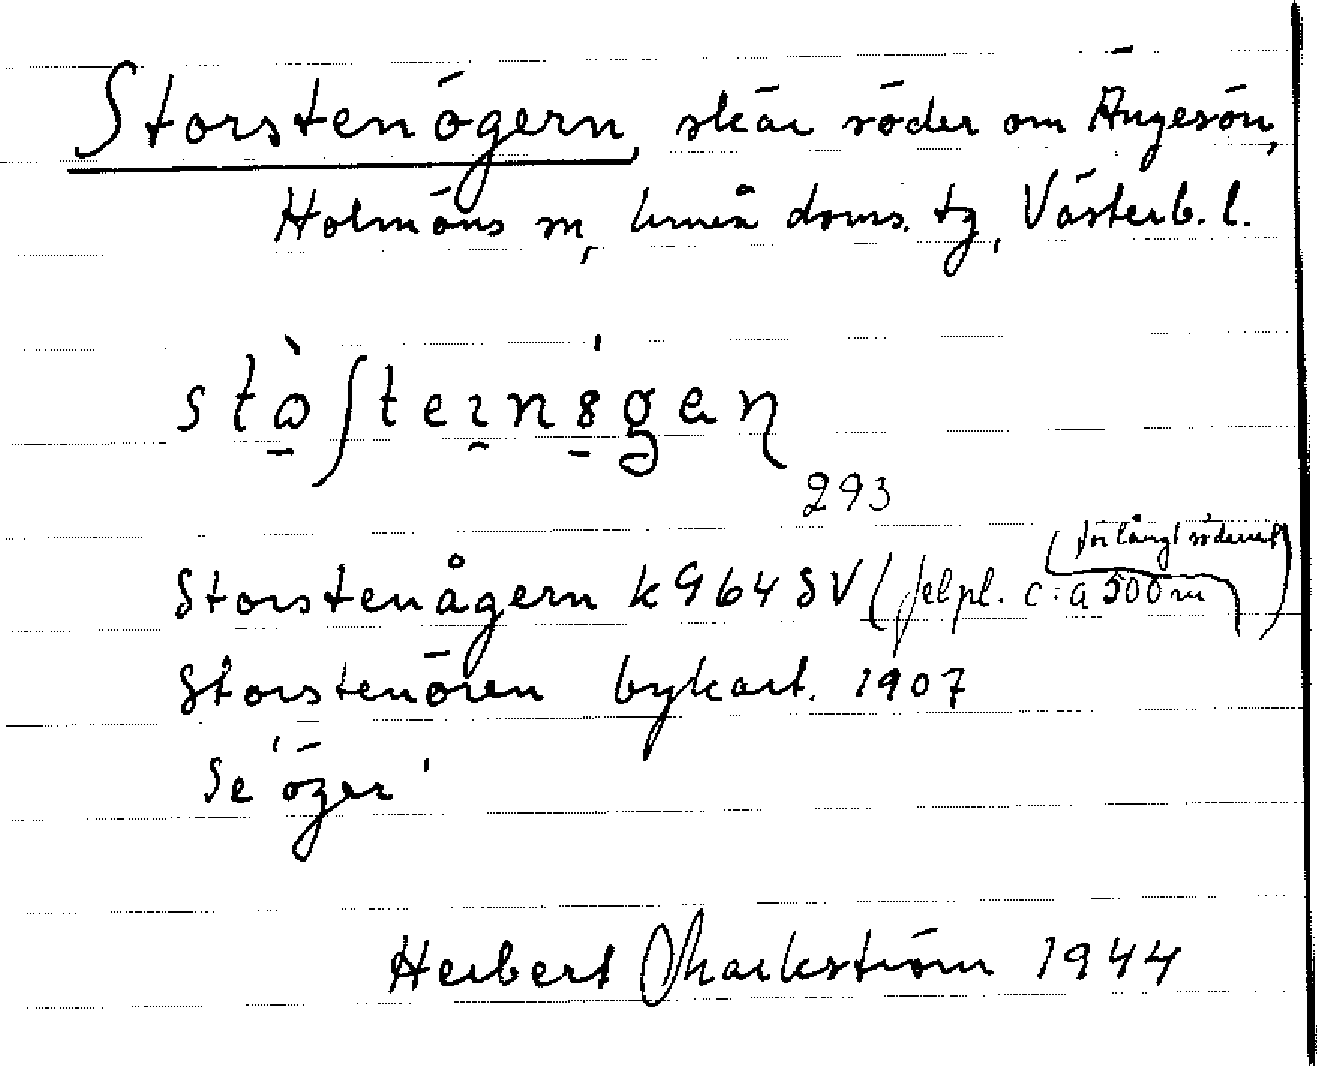 Storstenögern, skär söder om Ängesön,
Holmöns sn, Umeå doms. tg, Västerb. l.
293
Storstenågern k 964 SV (felpl. c:a 500 m för långt söderut)
Storstenören bykart. 1907
Se 'öger'
Herbert Markström 1944